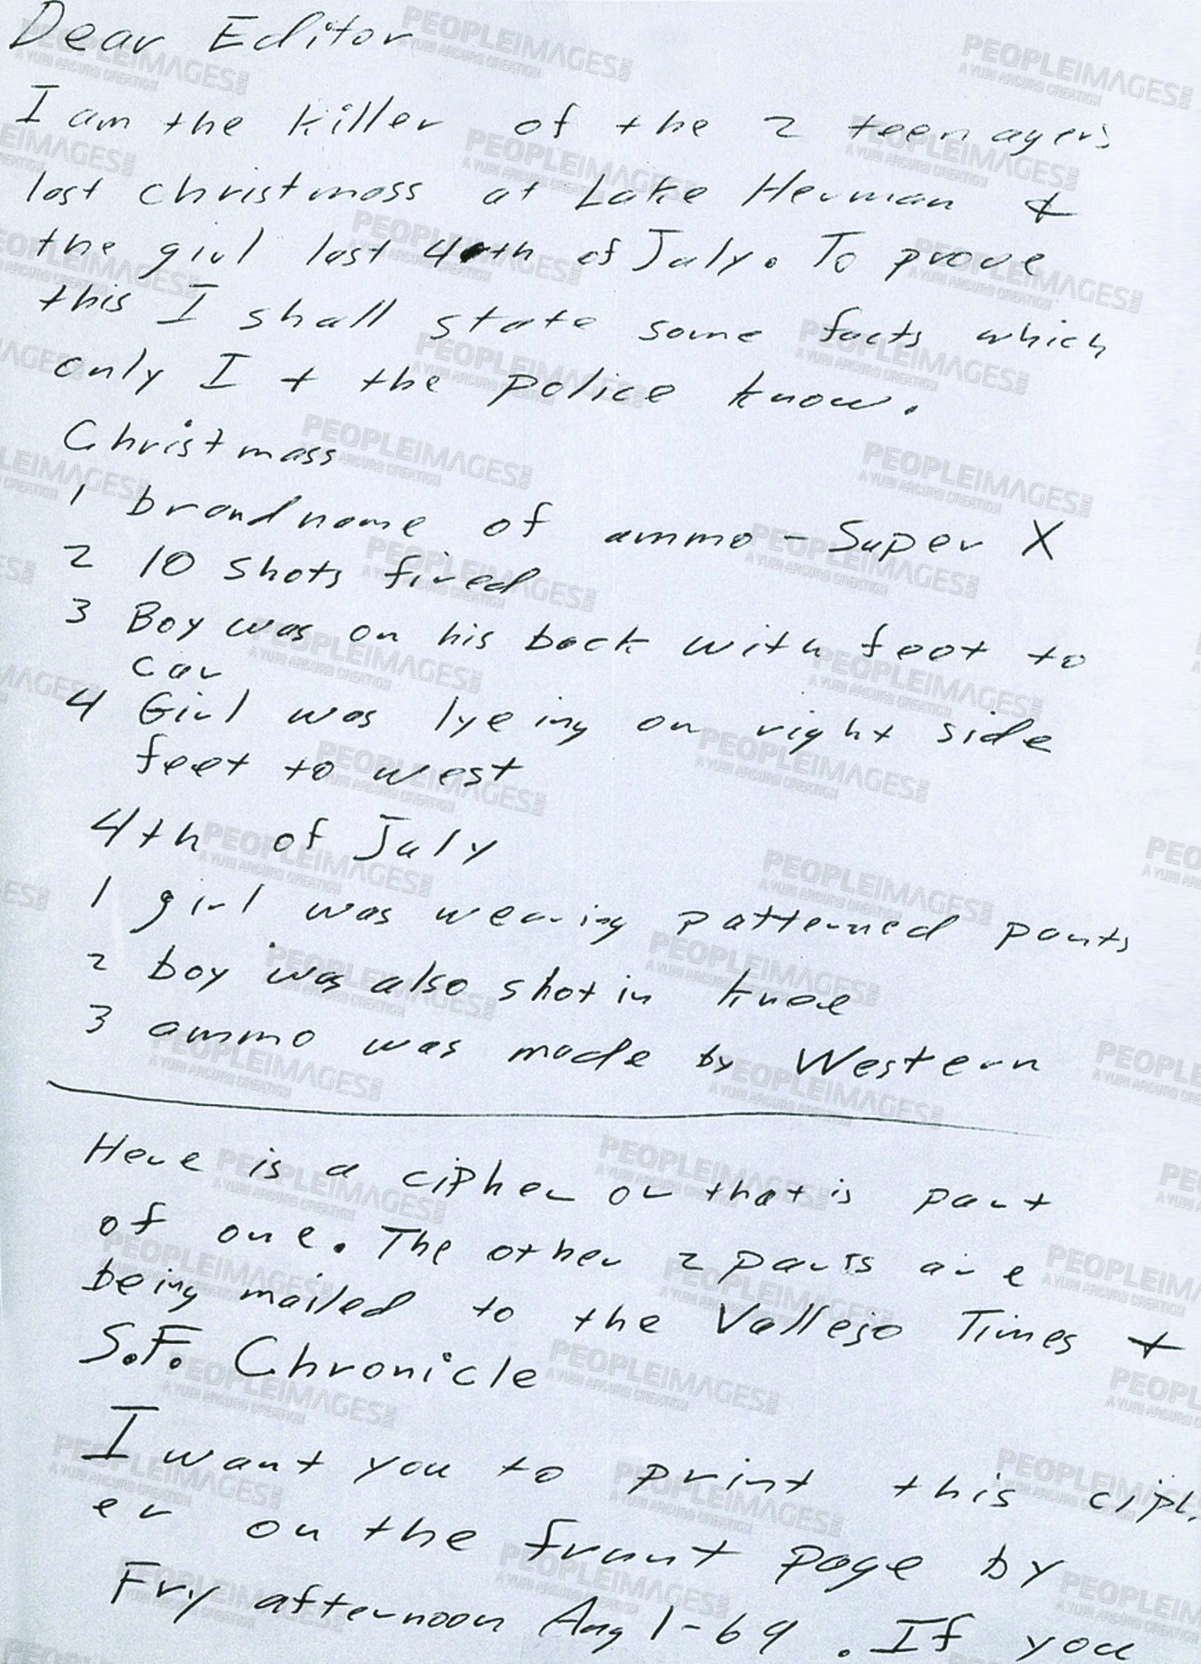 Dear Editor
I am the killer of the 2 teenagers
last christmass at Lake Herman &
the girl last 4th of July. To prove
this I shall state some facts which
only I + the police know.
Christmass
1 brand name of ammo - Super X
2 10 shots fired
3 Boy was on his back with feet to
car
4 Girl was lyeing on right side
feet to west
4th of July
1 girl was wearing patterned pants
2 boy was also shot in knee
3 ammo was made by Western
Here is a cipher or that is part
of one. The other 2 parts are
being mailed to the Vallejo Times +
S.F. Chronicle
I want you to print this ciph
er on the frunt page by
Fry afternoon Aug 1-69. If you
PEOPLEIMAGES.COM
A YURI ARCURS CREATION